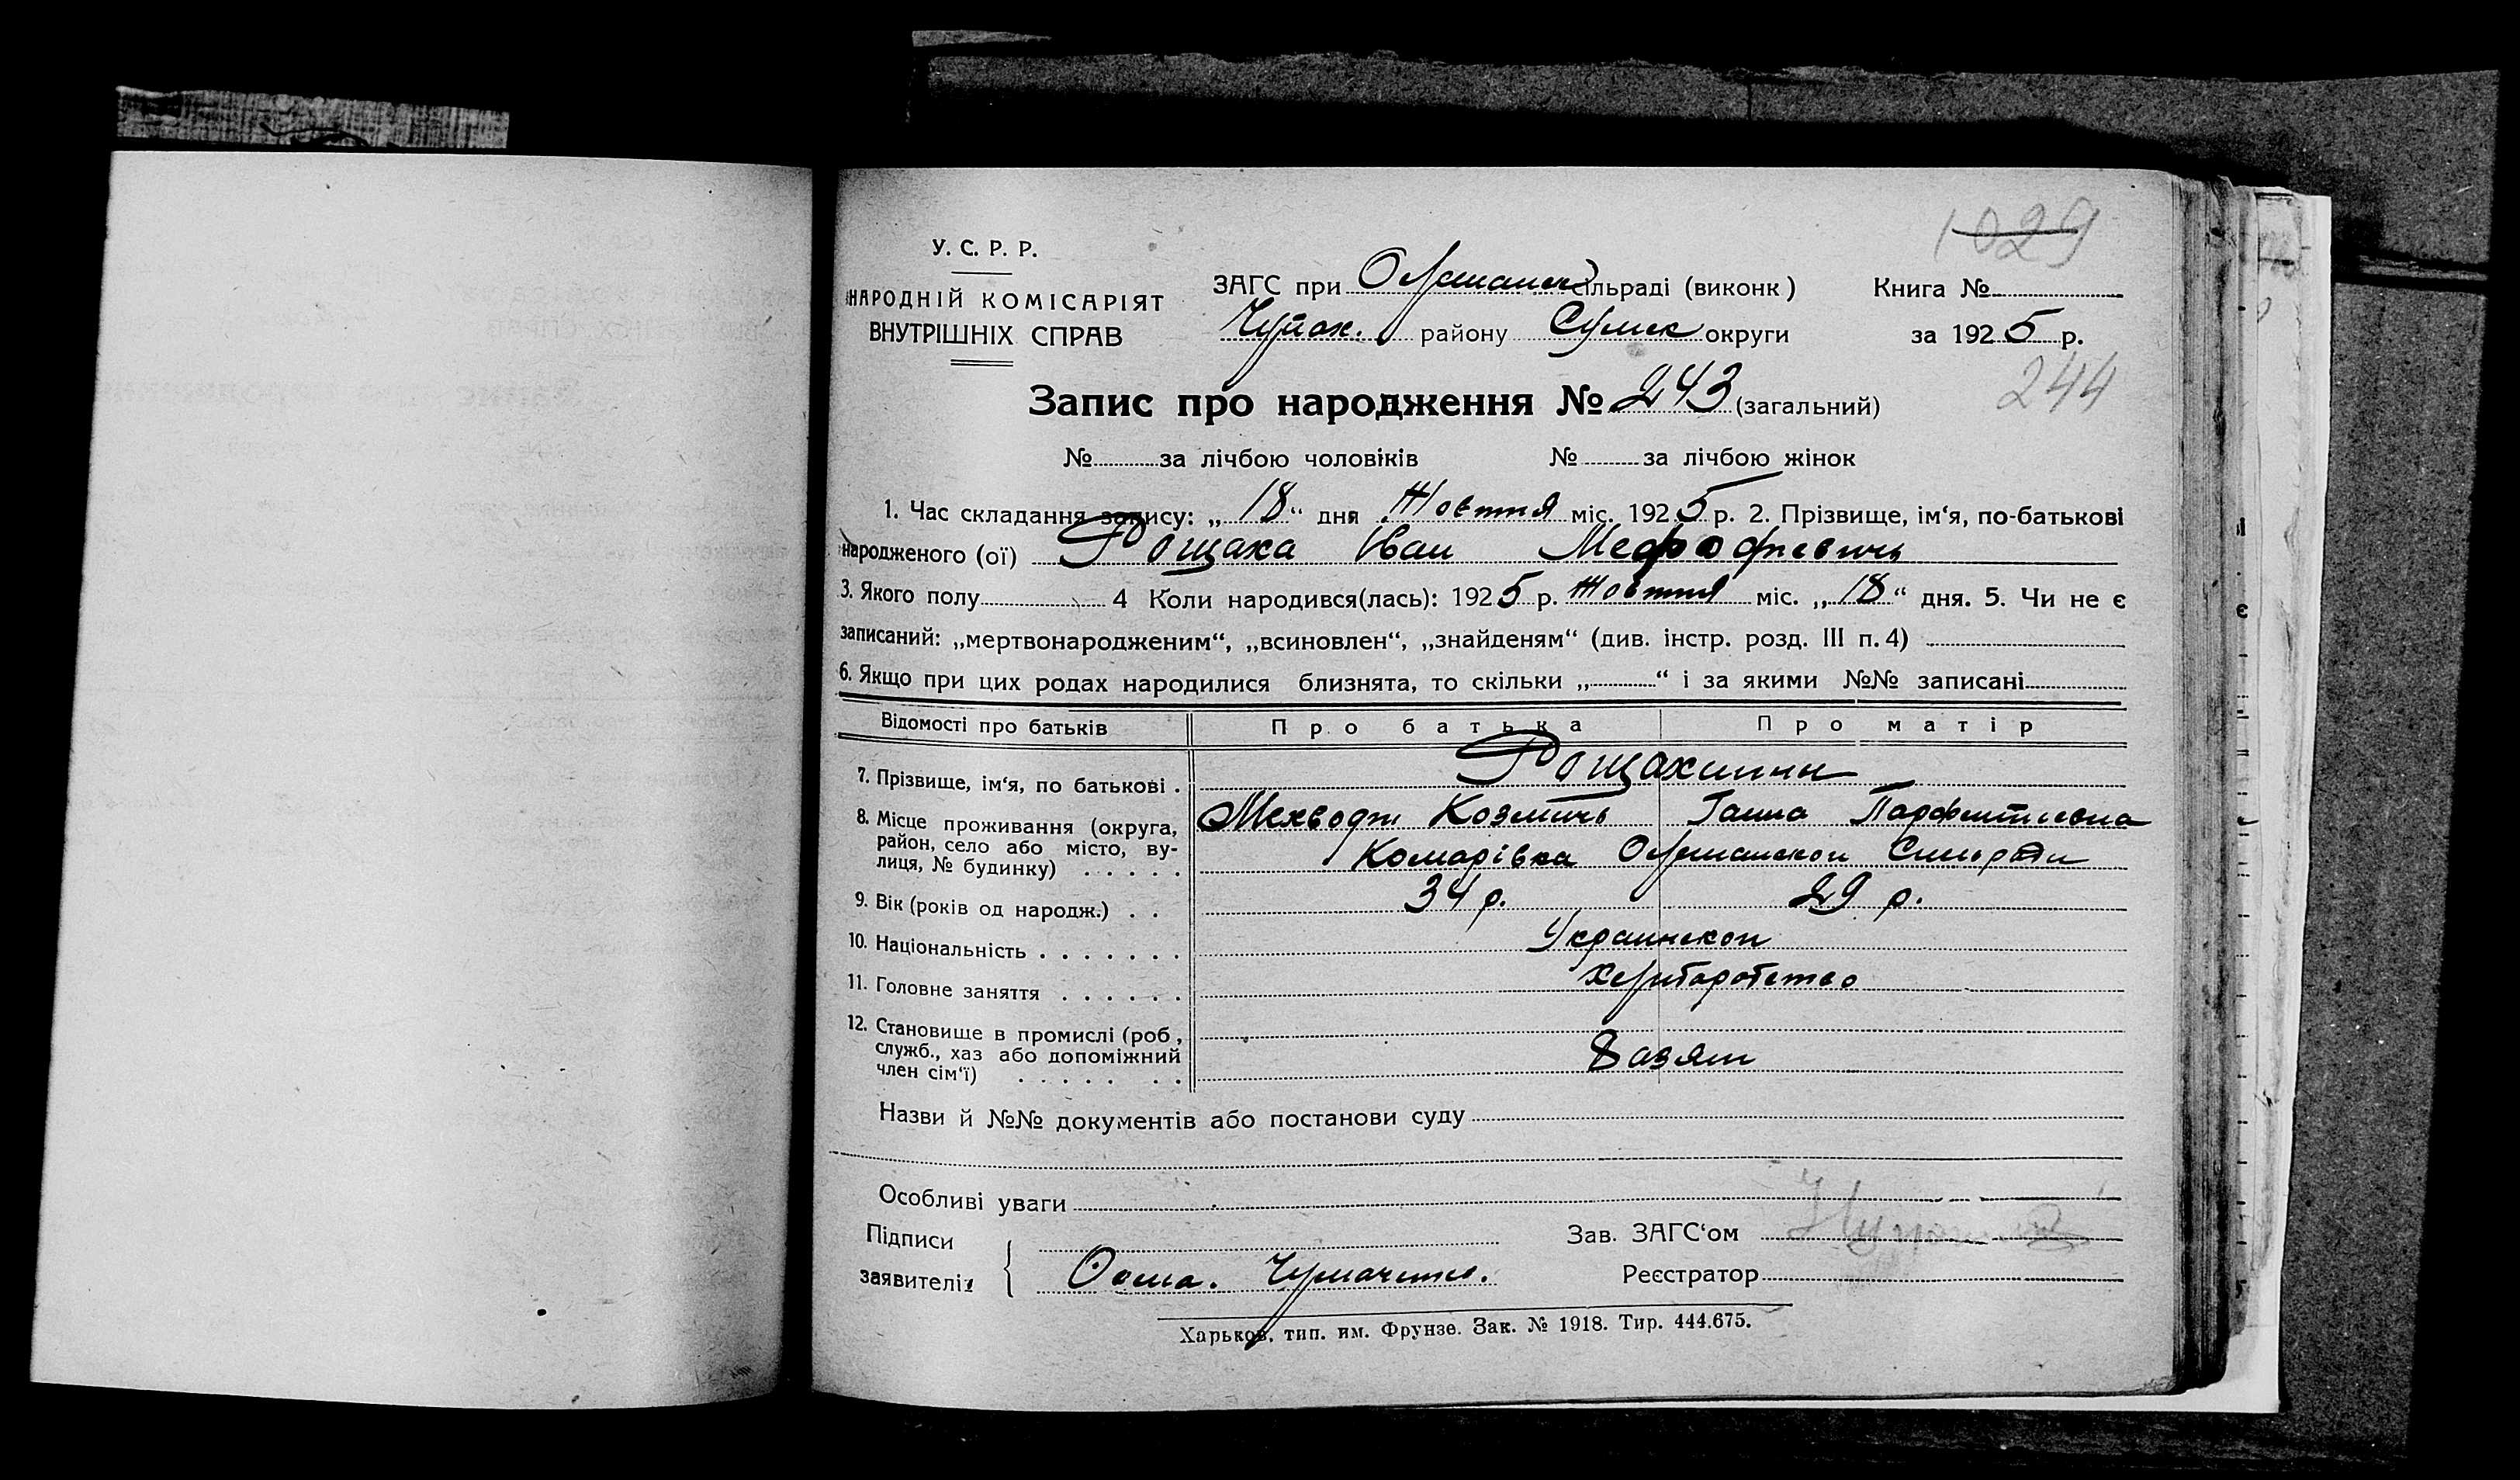 1029
У. С. Р. Р.
НАРОДНІЙ КОМІСАРІЯТ
ВНУТРІШНІХ СПРАВ
ЗАГС при Олешанск сільраді (виконк)
Чупах. району Сумск округи
Книга №
за 1925 р.
244
Запис про народження № 243 (загальний)
№ за лічбою чоловіків № за лічбою жінок
1. Час складання запису: „18“ дня Жовтня міс. 1925 р. 2. Прізвище, ім‘я, по-батькові
народженого (ої) Рощака Иван Мефодієвичь
3. Якого полу 4 Коли народився(лась): 1925 р. Жовтня міс. „18“ дня. 5. Чи не є
записаний: „мертвонародженим“, „всиновлен“, „знайденям“ (див. інстр. розд. III п. 4)
6. Якщо при цих родах народилися близнята, то скільки „ “ і за якими №№ записані
Відомості про батьків Про батька Про матір
7. Прізвище, ім‘я, по батькові .
8. Місце проживання (округа,
район, село або місто, ву-
лиця, № будинку) . . . . .
Козмичь Ганна
Комарівка
9. Вік (років од народж.) . . 34 р. 29 р.
10. Національність . . . . . . . Украинскои
11. Головне заняття . . . . . . Хлиборобство
12. Становище в промислі (роб,
служб., хаз або допоміжний
член сім‘ї) . . . . . . .
Хазяин
Назви й №№ документів або постанови суду
Особливі уваги
Підписи
заявителів
Чумаченко.
Зав. ЗАГС‘ом
Реєстратор
Харьков, тип. им. Фрунзе. Зак. № 1918. Тир. 444.675.